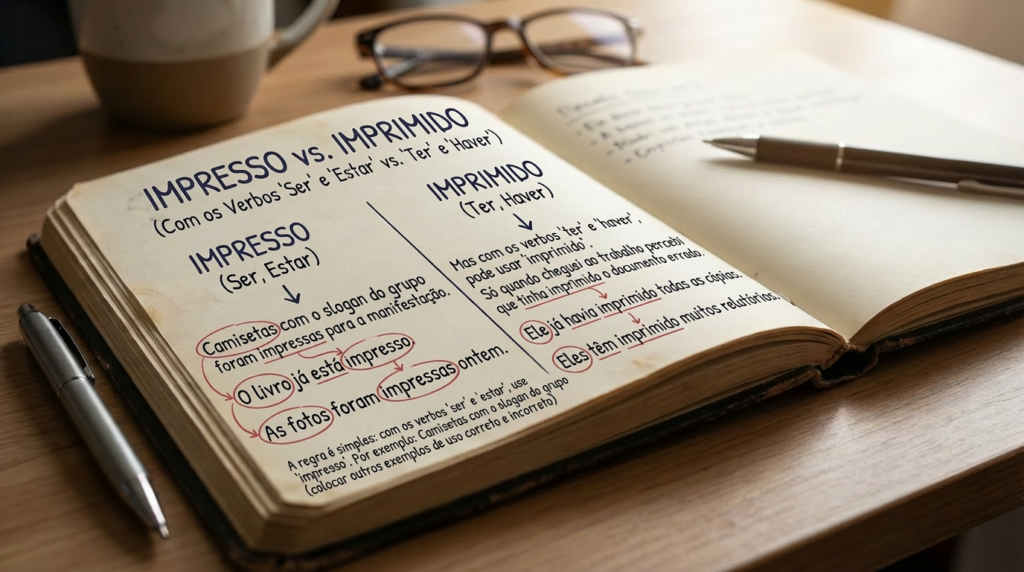 IMPRESSO vs. IMPRIMIDO
(Com os Verbos 'Ser' e 'Estar' vs. 'Ter' e 'Haver')
IMPRESSO
(Ser, Estar)
Camisetas com o slogan do grupo
foram impressas para a manifestação.
O livro já está impresso.
As fotos foram impressas ontem.
A regra é simples: com os verbos 'ser' e 'estar', use
'impresso'. Por exemplo: Camisetas com o slogan do grupo
(colocar outros exemplos de uso correto e incorreto)
IMPRIMIDO
(Ter, Haver)
Mas com os verbos 'ter' e 'haver',
pode usar 'imprimido'.
Só quando cheguei ao trabalho percebi
que tinha imprimido o documento errado.
Ele já havia imprimido todas as cópias.
Eles têm imprimido muitos relatórios.